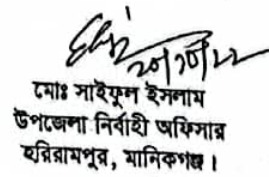 ২০/১০/২২
মোঃ সাইফুল ইসলাম
উপজেলা নির্বাহী অফিসার
হরিরামপুর, মানিকগঞ্জ।